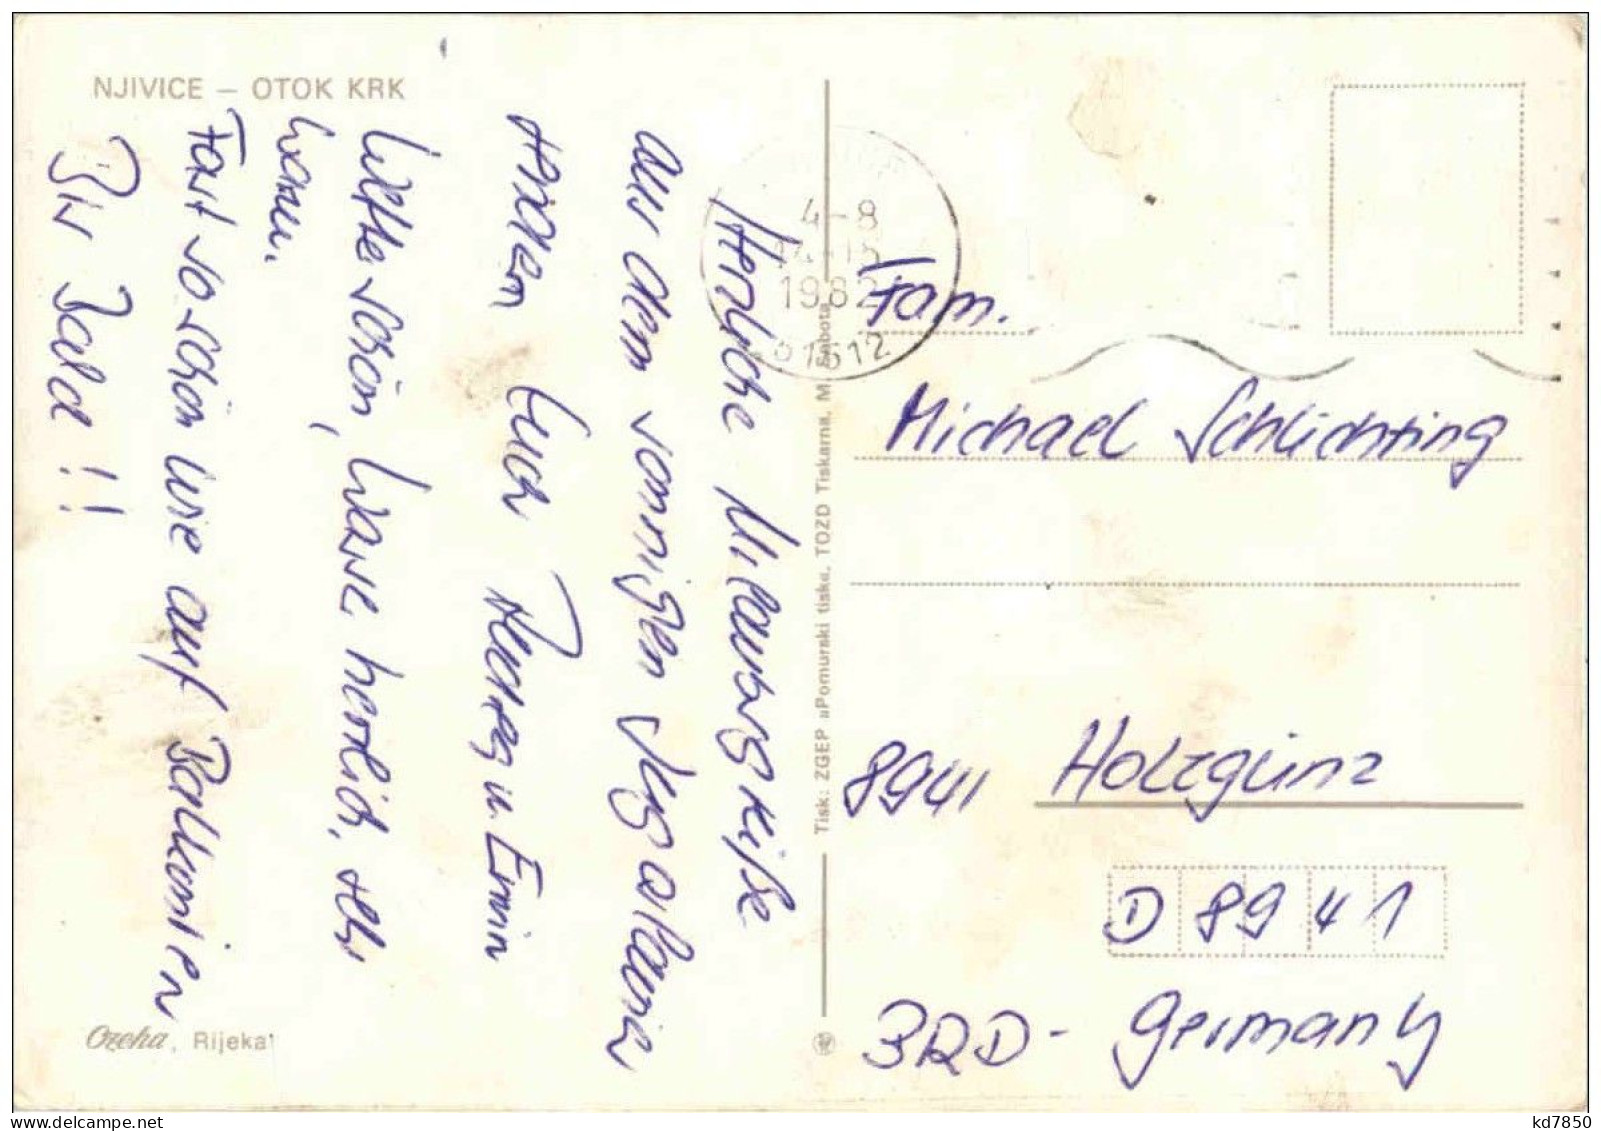 NJIVICE – OTOK KRK
Herzliche Urlaubsgrüße
aus dem sonnigen Jugoslawien
senden Euch
u. Erwin
Wetter schön, Wasser herrlich, sehr
warm.
Fast so schön wie auf Balkonien
Bis Bald!!
4-8
1982
51512
Fam.
Michael Schlichting
8941 Holzgünz
D 8941
BRD - Germany
Tisk: ZGEP »Pomurski tisk«, TOZD Tiskarna, M. Sobota
Ozeha, Rijeka
kd7850